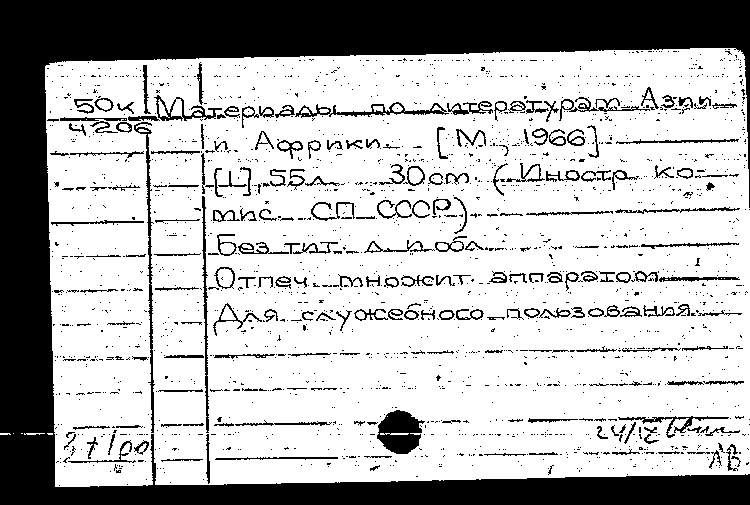 50к Материалы по литературам Азии
4206
и Африки. [М., 1966]
[1], 55л. 30см. (Иностр. ко-
мис. СП СССР)
Без тит. л. и обл.
Отпеч. множит. аппаратом.
Для служебного пользования.
3+100
24/IX
АВ